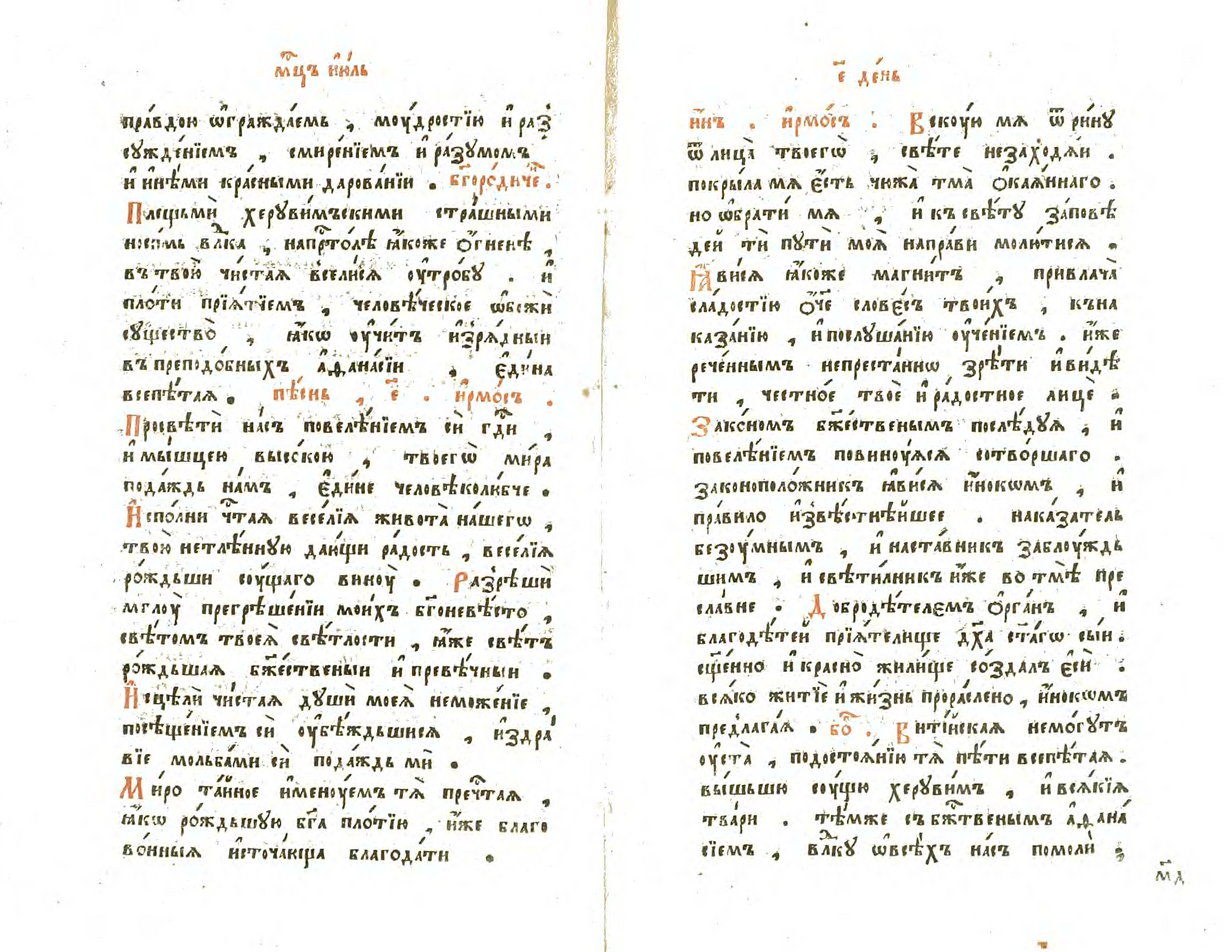 мц҃ъ і҆ю́ль
пра́вдою ѡ҆гражда́емь , моу́дростїю и҆ раз̾
сужде́нїемъ , смире́нїемъ и҆ ра́зумомъ
и҆ и҆нѣ́ми кра́сными дарова́нїи . бг҃оро́диче .
Плещьмѝ херуви́мъскими стра́шными
носи́мь влⷣка , напрⷭ҇то́лѣ ꙗ҆́коже о҆́гненѣ ,
въ твою̀ чи́стая вселисѧ ѹ҆тро́бу . и҆
пло́ти прїѧ́тїемъ , человѣ́ческое ѡ҆божи
существо̀ , ꙗ҆́кѡ ѹ҆чи́тъ и҆зрѧ́дныи
въ преподо́бныхъ а҆ѳана́сїи , є҆ди́на
всепѣ́таѧ . пѣ́снь , є҃ . і҆рмо́съ .
Просвѣти на́съ повелѣ́нїемъ си гдⷭ҇и ,
и҆ мы́шцею высо́кою , твоегѡ̀ ми́ра
пода́ждь на́мъ , є҆ди́не человѣколю́бче .
И҆спо́лни чтⷭ҇аѧ весе́лїѧ живота̀ на́шегѡ ,
твою̀ нетлѣ́нную даю́щи ра́дость , весе́лїѧ
ро́ждьши соу́щаго виноу̀ . Разрѣши
мглоу̀ прегрѣше́нїи мои́хъ бг҃оневѣ́сто ,
свѣ́томъ твоеѧ̀ свѣ́тлости , ꙗ҆́же свѣ́тъ
ро́ждьшаѧ бжⷭ҇е́ственыи и҆ превѣ́чныи .
И҆сцѣлѝ чи́стаѧ душѝ моеѧ̀ неможе́нїе ,
посѣще́нїемъ сѝ ѹ҆бѣ́ждьшисѧ , и҆здра́
вїе мольба́ми сѝ пода́ждь мѝ .
Ми́ро та́йное и҆мену́емъ тѧ̀ пречⷭ҇таѧ ,
ꙗ҆́кѡ ро́ждьшую бг҃а пло́тїю , и҆́же благо
во́нныѧ и҆сточа́юща благода́ти .
є҃ де́нь
и҆́нъ . і҆рмо́съ . Вскоу́ю мѧ ѿри́ну
ѿ лица̀ твоегѡ̀ , свѣ́те незаходѧ́и .
покры́ла мѧ є҆́сть чюжа̀ тма̀ о҆каѧ́ннаго .
но ѡ҆брати мѧ , и҆ къ свѣ́ту за́повѣ
дей тѝ пути моѧ̀ напра́ви моли́тисѧ .
Ꙗ҆ви́сѧ ꙗ҆́коже магни́тъ , привлача̀
сла́достїю о҆́ч҃е слове́съ твои́хъ , къ на
каза́нїю , и҆ послуша́нїю ѹ҆че́нїемъ . и҆́же
рече́ннымъ непреста́ннѡ зрѣ́ти и҆ ви́дѣ
ти , честно́е твоѐ и҆ ра́достное лицѐ .
Зако́номъ бжⷭ҇е́ственымъ послѣ́дуѧ , и҆
повелѣ́нїемъ повину́ѧсѧ сотво́ршаго .
законополо́жникъ ꙗ҆ви́сѧ и҆́нокѡмъ , и҆
пра́вило и҆звѣ́стнѣйшее . наказа́тель
безу́мнымъ , и҆ наста́вникъ заблу́ждь
шимъ , и҆ свѣти́лникъ и҆́же во тмѣ̀ пре
сла́вне . Добродѣ́телемъ о҆рга́нъ , и҆
благодѣ́тей прїѧ́телище дх҃а ст҃а́гѡ сы́и .
сщ҃е́нно и҆ кра́сно жили́ще созда́лъ є҆сѝ .
всѧ́ко житїѐ и҆ жи́знь прорасле́но , и҆́нокѡмъ
предлага́ѧ . бо҃ . Вити́йскаѧ немо́гутъ
ѹ҆ста̀ , подостоѧ́нїю тѧ̀ пѣ́ти всепѣ́таѧ .
вы́шьшю су́щю херуви́мъ , и҆ всѧ́кїѧ
тва́ри . тѣ́мже съ бжⷭ҇твенымъ а҆ѳана́
сїемъ , влⷣку ѡ҆ всѣ́хъ на́съ помоли .
м҃д